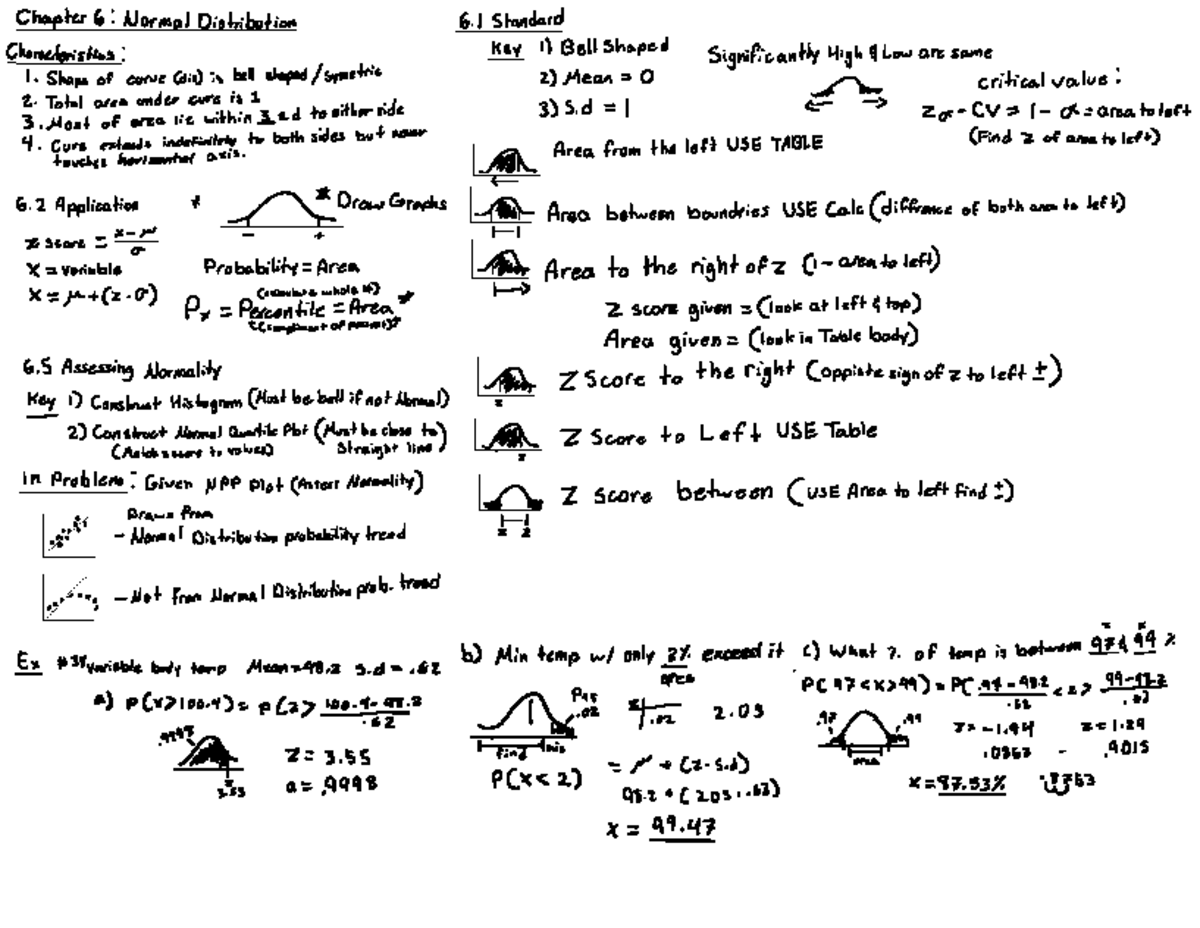 Chapter 6: Normal Distribution
Characteristics:
1. Shape of curve (dis) is bell shaped/symetric
2. Total area under curve is 1
3. Most of area lie within 3 s.d to either side
4. Curve extends indefinitely to both sides but never
touches horizontal axis.
6.2 Application
* Draw Graphs
- +
z score = x-μ/σ
x = variable
x = μ+(z·σ)
Probability = Area
Px = Percentile = Area *
6.5 Assessing Normality
Key 1) Construct Histogram (Must be bell if not Normal)
2) Construct Normal Quartile Plot (Must be close to)
Straight line)
In Problem: Given NPP Plot (Assess Normality)
Drawn from
- Normal Distribution probability trend
- Not From Normal Distribution prob. trend
6.1 Standard
Key 1) Bell Shaped
2) Mean = 0
3) S.d = 1
Significantly High & Low are same
critical value:
Zα - CV = 1 - α = area to left
(Find z of area to left)
Area from the left USE TABLE
Area between boundries USE Calc (diffrence of both area to left)
Area to the right of z (1- area to left)
Z score given = (look at left & top)
Area given = (look in Table body)
Z Score to the right (oppisite sign of z to left ±)
z
Z Score to Left USE Table
z
Z Score between (USE Area to left find ±)
z z
Ex variable body temp Mean=98.2 S.d = .62
a) P(x>100.4) = P(z> 100.4-98.2/.62
.9998
3.55
Z = 3.55
a = .9998
b) Min temp w/ only 2% exceed it
area
.02
find
.02 2.05
P(x<2)
= μ + (z·s.d)
98.2 + (2.05·.62)
x = 99.47
c) What % of temp is between 97 & 99 %
P(97<x>99) = P( 97-98.2/.62 < z > 99-98.2/.62
area
z=-1.94 z=1.29
.9015